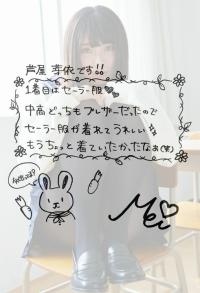 芦屋 芽依です!!
1着目はセーラー服♡♡
中高どっちもブレザーだったので
セーラー服が着れてうれしい
もうちょっと着ていたかったなぁ(笑)
Mei♡